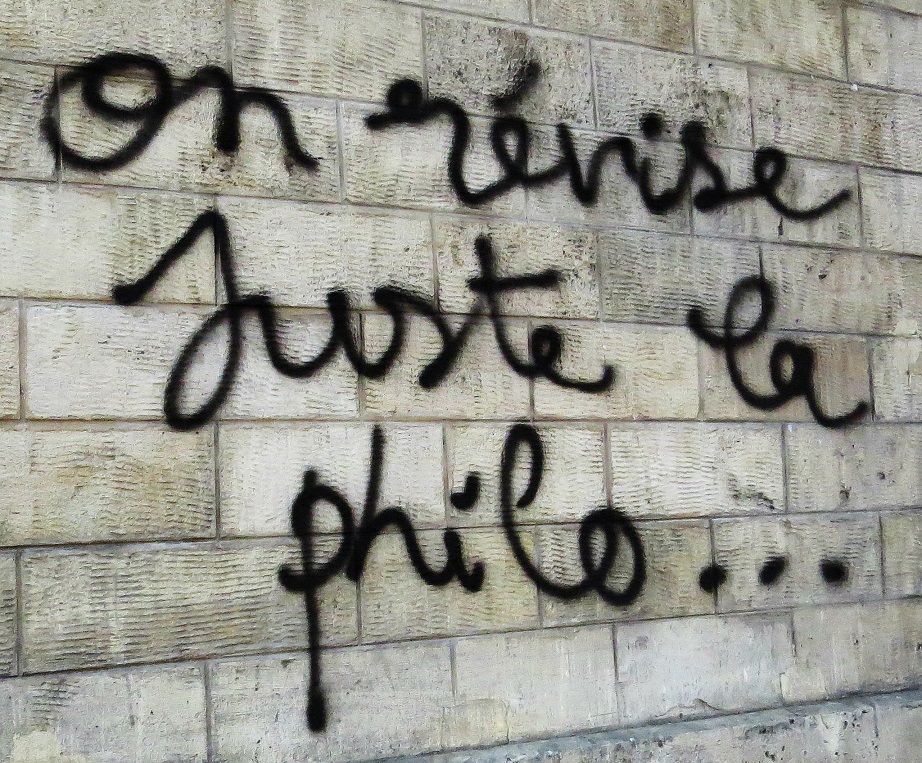 On révise
Juste la
philo...